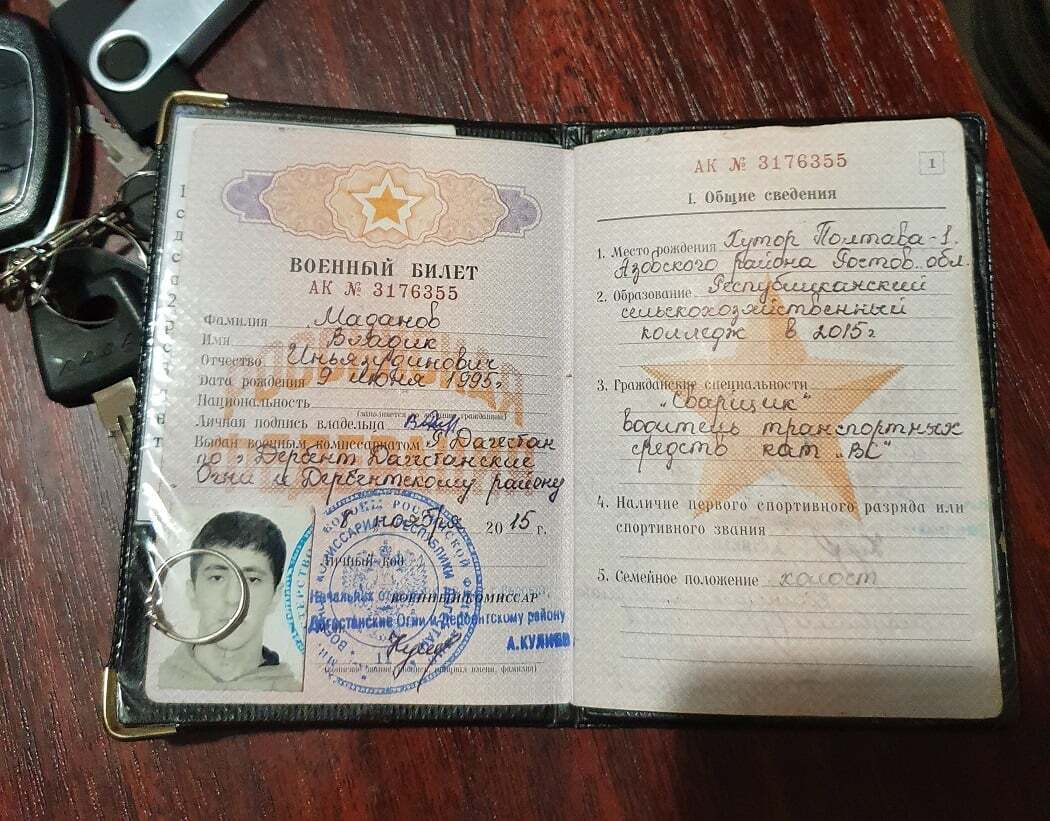 ВОЕННЫЙ БИЛЕТ
АК № 3176355
Фамилия Маданов
Имя Владик
Отчество Иньязудинович
Дата рождения 9 июня 1995г
Национальность
Личная подпись владельца
Выдан военным комиссариатом Р Дагестан
по г Дербент Дагестанские
Огни и Дербентскому району
8 ноября 2015 г.
Личный код
ВОЕННЫЙ КОМИССАР
Дагестанские Огни и Дербентскому району
А.КУЛИЕВ
АК № 3176355
1
I. Общие сведения
1. Место рождения Хутор Полтава-1.
Азовского района Ростов. обл.
2. Образование Республиканский
сельскохозяйственный
колледж в 2015г
3. Гражданские специальности
„Сварщик“
Водитель транспортных
средств кат „ВС“
4. Наличие первого спортивного разряда или
спортивного звания
5. Семейное положение холост